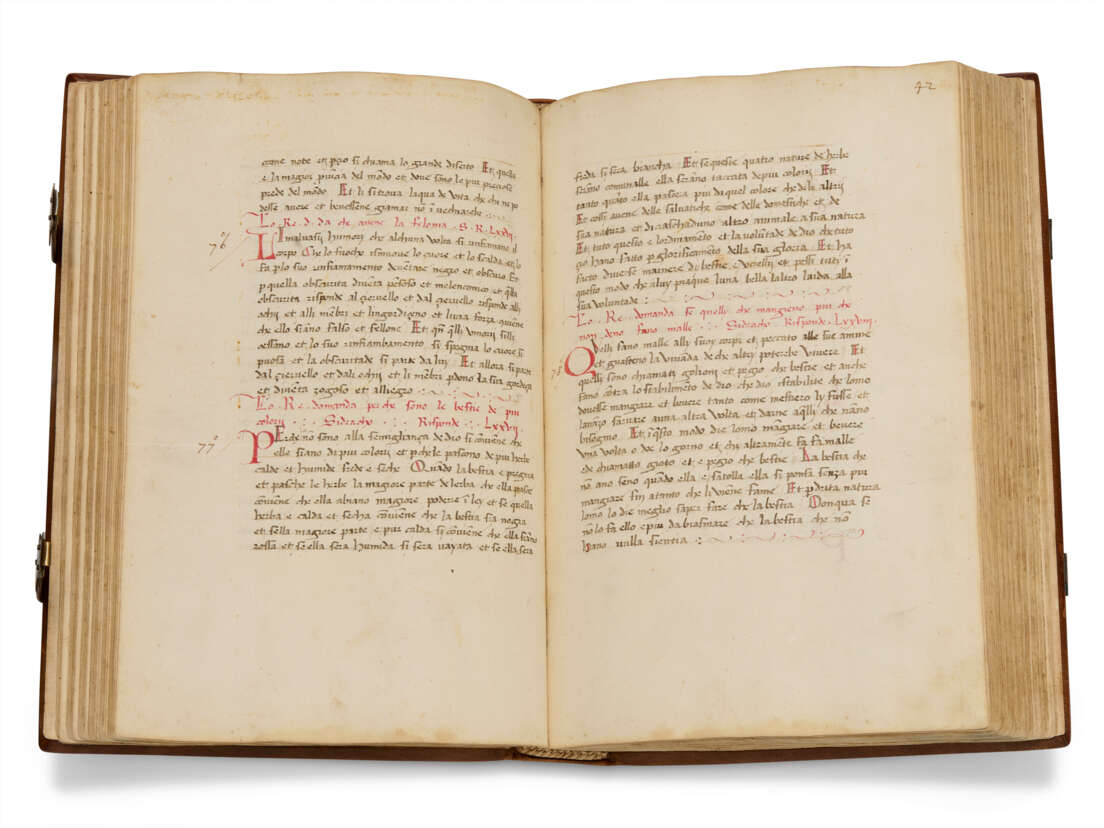 come note et pso si chiama lo grande diserto Et quella
e la magior piucia del mōdo et doue sono le piu preciose
prede del mōdo Et li si troua laqua de vita che chi ne po
desse auere et beuessene giamai nō ī uechiarebe
Lo Re d. da che auene la felonia S. R. Lxxvj
76
LI maluasij humori che alchuna volta si infiamano il
corpo Che lo fuocho rismoue lo cuore et lo scalda et lo
fa plo suo infiamamento deuētare negro et obscuro Et
p quella obscurita diuēta pēsoso et melenconico et qlla
obscurita risponde al ceruello et dal ceruello risponde alli
ochij et alli mēbri et lingordigno et luia forza quiene
che ello siano falso et fellone Et qn qlli vmorij silli
cessano et lo suo infiambamento si spegna lo cuore si
posa et la obscuritade si parte da lui Et allora si parte
dal ciervello et dali ochij et li mēbri pdono la sua gordeça
et diuēta zogoso et alliegro
Lo Re domanda perche sono le bestie de piu
colorij Sidracho Risponde Lxxvij
77
PErcieno sono alla semigliança de dio si conviene che
elle siano di piu colorij et pche le pascono de piu herbe
calde et humide frede e seche Quādo la bestia e pregna
et pasche le herbe la magiore parte de herba che ella pasce
conviene che ella abiano magiore podere ī ley et se quella
herba e calda et secha conviene che la bestia sia negra
et sella magiore parte e piu calda si conviene che ella siano
rossa et se ella sera humida si sera vayata et se ella sera
42
freda si sera biancha Et se queste quatro nature de herbe
serāno comunalle ella serāno taccata de piu colorij Et
tanto quāto ella pascera piu di quel colore che deli altrij
Et cossi auene delle saluatiche come delle domestiche et de
sua natura et di caschaduno altro animale a sua natura
Et tuto questo e lordinamēto et la voluntade de dio che tuto
ço hano fatto p glorificamēto della sua gloria Et ha
facto diuerse mainere di bestie e Vcellij et pessi tuti ī
questo modo che aluy piaque luna bella laltro laida alla
sua voluntade
Lo Re domanda se quelli che mangieno piu che
non deno fano malle Sidracho Risponde Lxxviij
78
QVelli fano malle alli suoy corpi et peccato alle sue anime
et guasteno la viuāda de che altry poterebe viuere Et
quelli sono chiamati golionj et pegio che bestie et anche
fano cōtra lo stabilimēto de dio che dio stabilite che lomo
douesse mangiare et beuere tanto come mestiero ly fusse et
lauāzo saruare auna altra volta et darne aqlli che nāno
bisogno Et ī qsto modo die lomo māgiare et beuere
vna volta o doe lo giorno et chi altramēte fa fa malle
et e chiamatto gioto et e pegio che bestie La bestia che
nō ano seno quādo ella e satolla ella si possa senza piu
mangiare fin atanto che li viene fame Et p drita natura
lomo lo die meglio saper fare che la bestia Donqua se
nō lo fa ello e piu da biasmare che la bestia che nō
hano vulla sientia